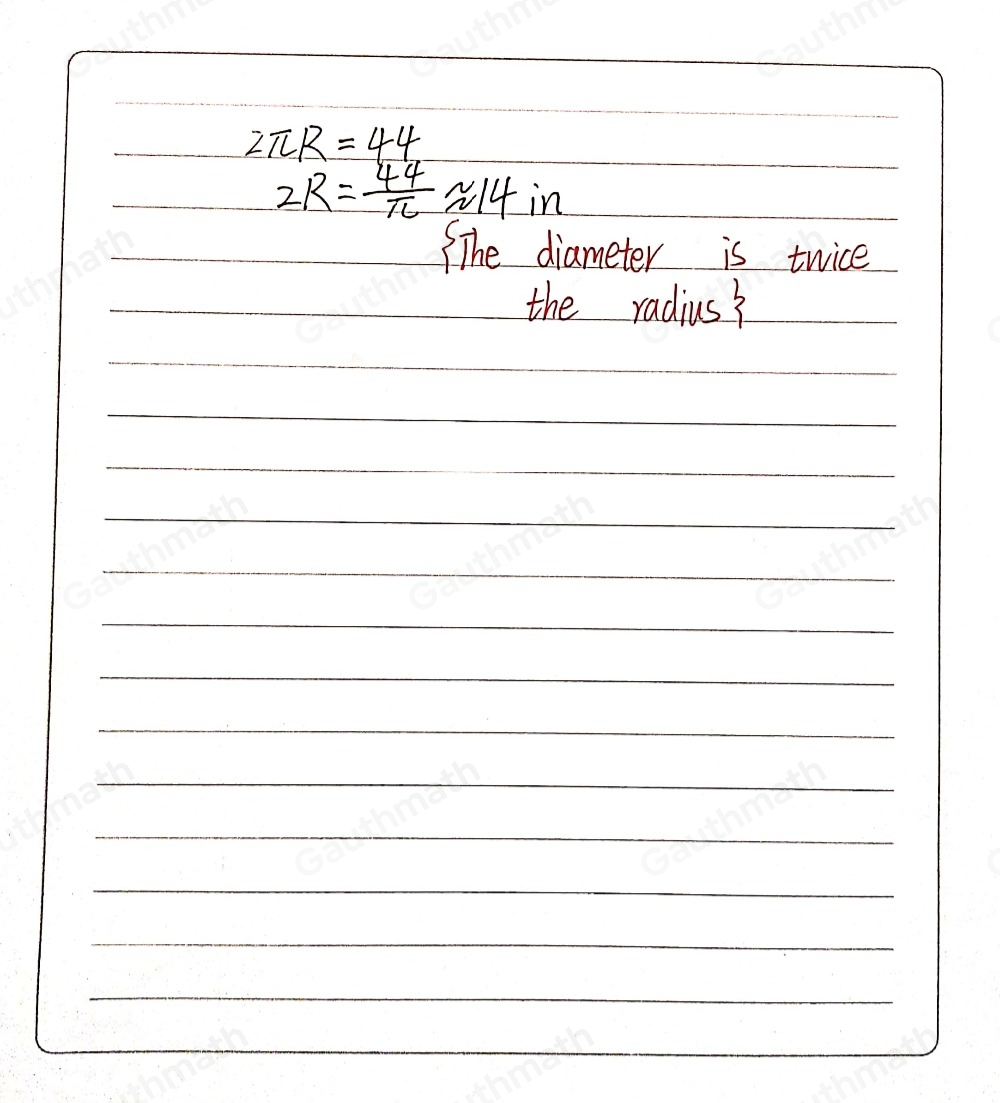 2πR = 44
2R = 44/π ≈ 14 in
{The diameter is twice
the radius}
Gauthmath